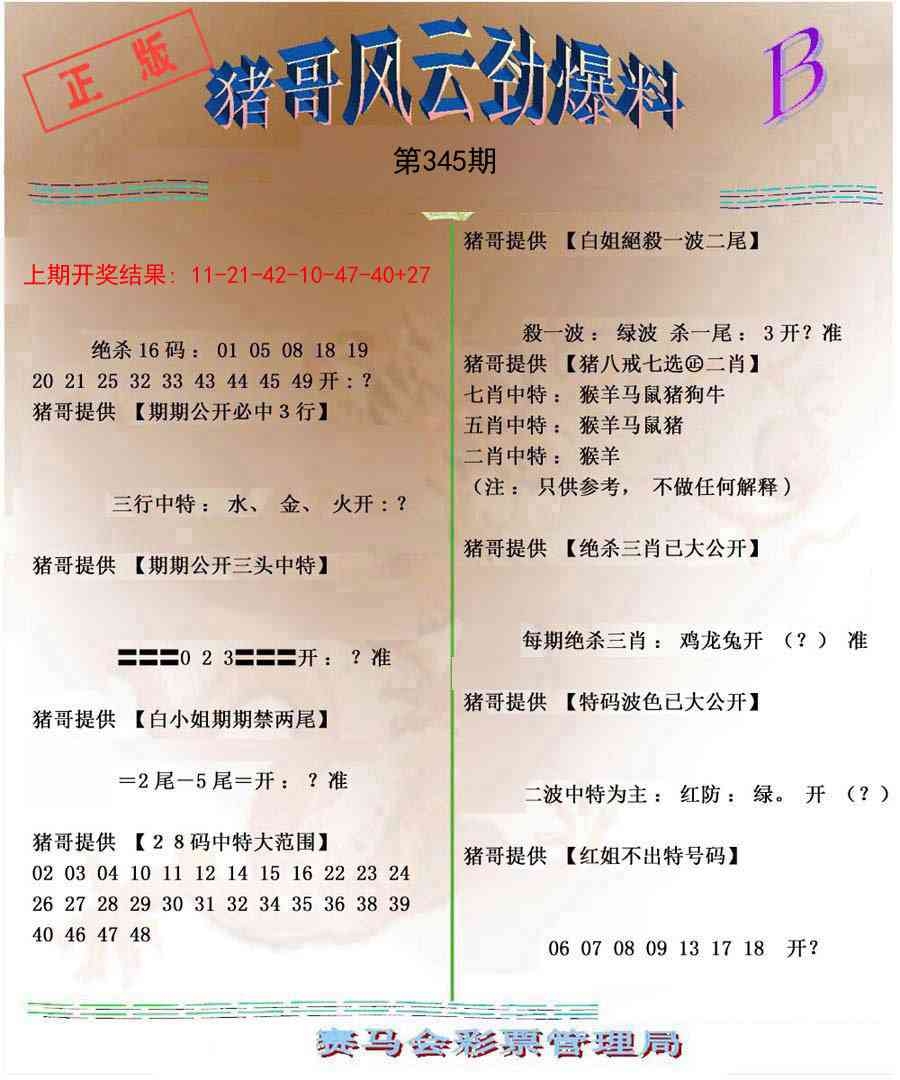 正版
猪哥风云劲爆料
B
第345期
上期开奖结果: 11-21-42-10-47-40+27
绝杀16码: 01 05 08 18 19
20 21 25 32 33 43 44 45 49开:?
猪哥提供 【期期公开必中3行】
三行中特: 水、 金、 火开:?
猪哥提供 【期期公开三头中特】
〓〓〓0 2 3〓〓〓开: ?准
猪哥提供 【白小姐期期禁两尾】
=2尾-5尾=开: ?准
猪哥提供 【28码中特大范围】
02 03 04 10 11 12 14 15 16 22 23 24
26 27 28 29 30 31 32 34 35 36 38 39
40 46 47 48
猪哥提供 【白姐絕殺一波二尾】
殺一波: 绿波 杀一尾: 3开?准
猪哥提供 【猪八戒七选㊣二肖】
七肖中特: 猴羊马鼠猪狗牛
五肖中特: 猴羊马鼠猪
二肖中特: 猴羊
(注: 只供参考, 不做任何解释)
猪哥提供 【绝杀三肖已大公开】
每期绝杀三肖: 鸡龙兔开 (?) 准
猪哥提供 【特码波色已大公开】
二波中特为主: 红防: 绿。 开 (?)
猪哥提供 【红姐不出特号码】
06 07 08 09 13 17 18 开?
赛马会彩票管理局